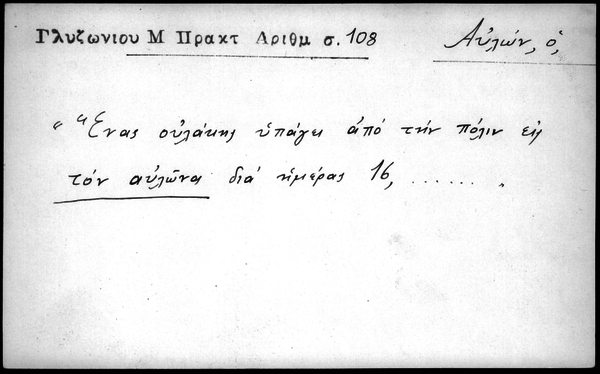 Γλυζωνιου Μ Πρακτ Αριθμ σ. 108
Αὐλών, ὁ,
" Ἕνας οὐλάκης ὑπάγει ἀπό τήν πόλιν εἰς
τόν αὐλῶνα διά ἡμέρας 16, ....... "